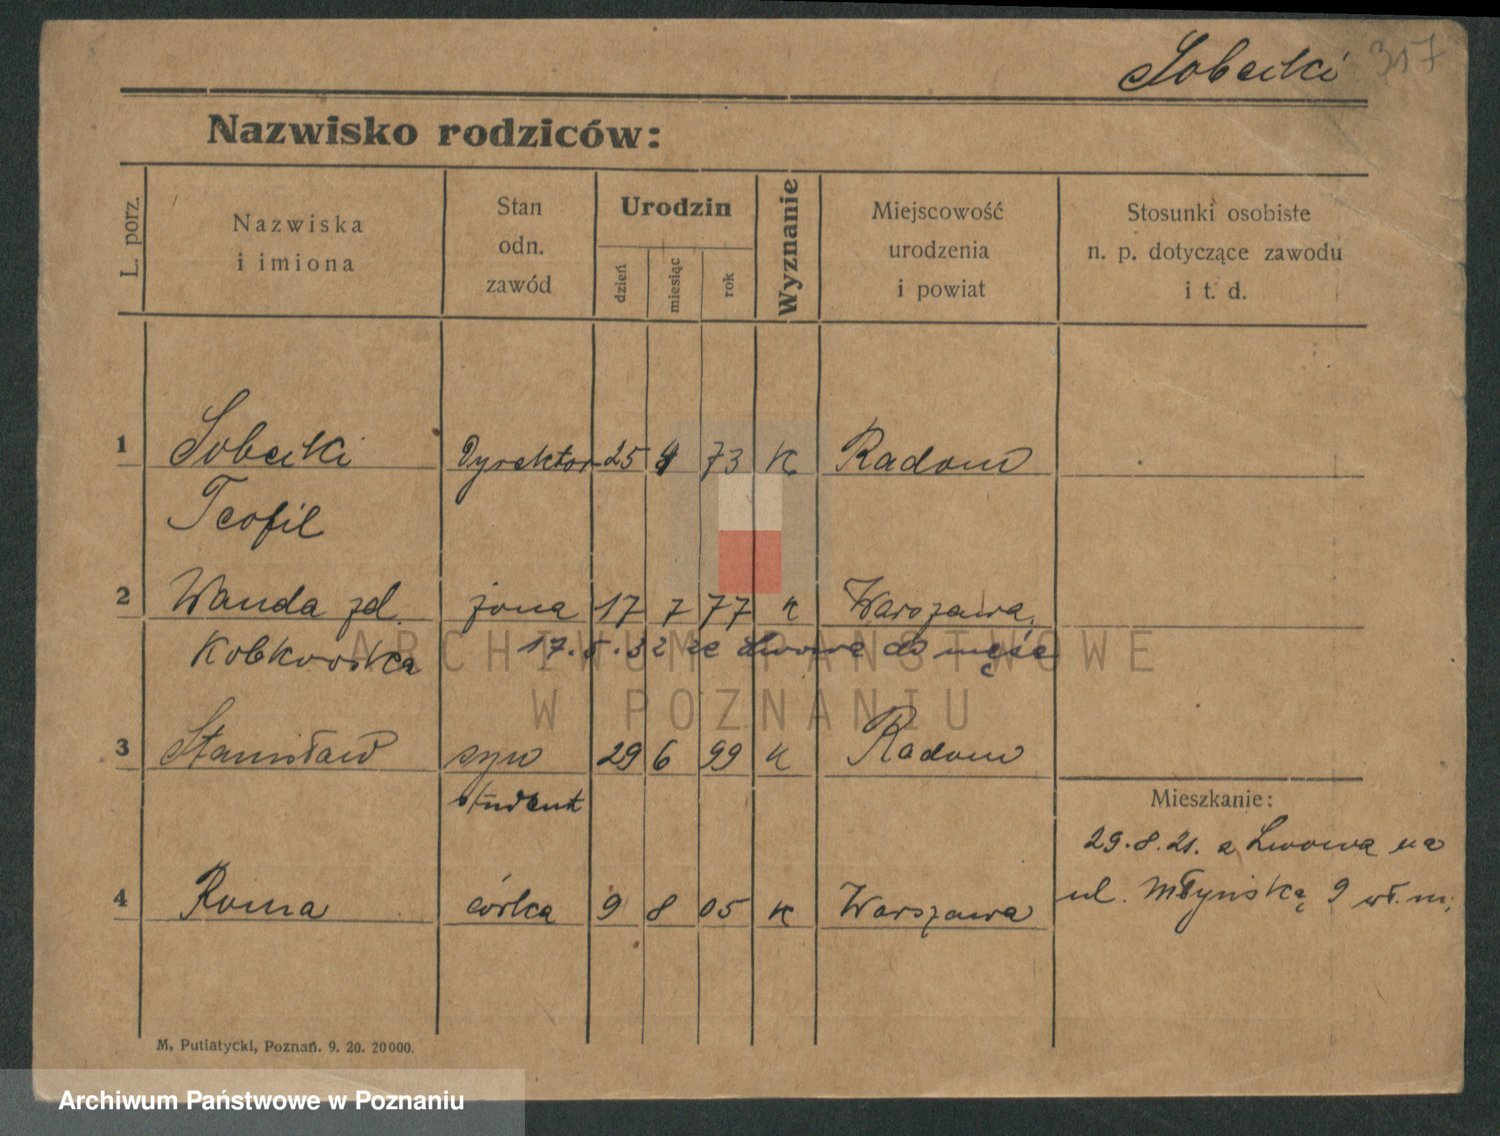 Sobecki 317
Nazwisko rodziców:
L. porz.
Nazwiska
i imiona
Stan
odn.
zawód
Urodzin
dzień
miesiąc
rok
Wyznanie
Miejscowość
urodzenia
i powiat
Stosunki osobiste
n. p. dotyczące zawodu
i t. d.
1 Sobecki Dyrektor 25 4 73 K Radom
Teofil
2 Wanda zd. żona 17 7 77 K Warszawa
Kobkowska 17.5.32 ze Lwowa do męża
ARCHIWUM PAŃSTWOWE
W POZNANIU
3 Stanisław syn 29 6 99 K Radom
student
Mieszkanie:
29.8.21. z Lwowa na
ul. Młyńską 9 wł. m.
4 Roma córka 9 8 05 K Warszawa
M. Putiatycki, Poznań. 9. 20. 20000.
Archiwum Państwowe w Poznaniu